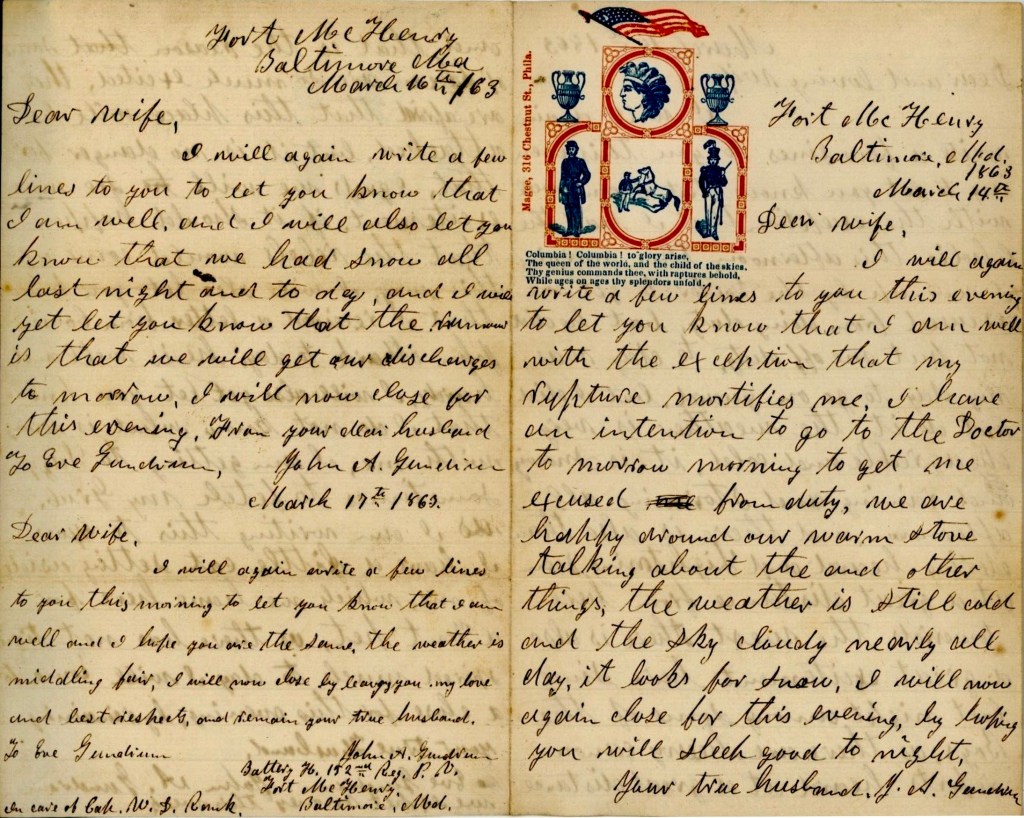 Fort Mc Henry
Baltimore Md
March 16th /63
Dear wife,
I will again write a few
lines to you to let you know that
I am well, and I will also let you
know that we had snow all
last night and to day, and I will
yet let you know that the rumour
is that we will get our discharges
to morrow, I will now close for
this evening, From your dear husband
To Eve Gundrum, John A. Gundrum
March 17th 1863.
Dear Wife,
I will again write a few lines
to you this morning to let you know that I am
well and I hope you are the same, the weather is
middling fair, I will now close by you my love
and best respects, and remain your true husband.
To Eve Gundrum John A. Gundrum
Battery H. 152nd Reg. P. V.
Fort Mc Henry,
In care of Cap. W. D. Baltimore, Md.
Magee, 316 Chestnut St., Phila.
Columbia! Columbia! to glory arise,
The queen of the world, and the child of the skies,
Thy genius commands thee, with raptures behold,
While ages on ages thy splendors unfold.
Fort Mc Henry
Baltimore, Md.
1863
March 14th
Dear wife,
I will again
write a few lines to you this evening
to let you know that I am well
with the exception that my
rupture mortifies me, I have
an intention to go to the Doctor
to morrow morning to get me
excused from duty, we are
happy around our warm stove
talking about the and other
things, the weather is still cold
and the sky cloudy nearly all
day, it looks for snow, I will now
again close for this evening, by hoping
you will sleek good to night,
Your true husband. J. A. Gundrum